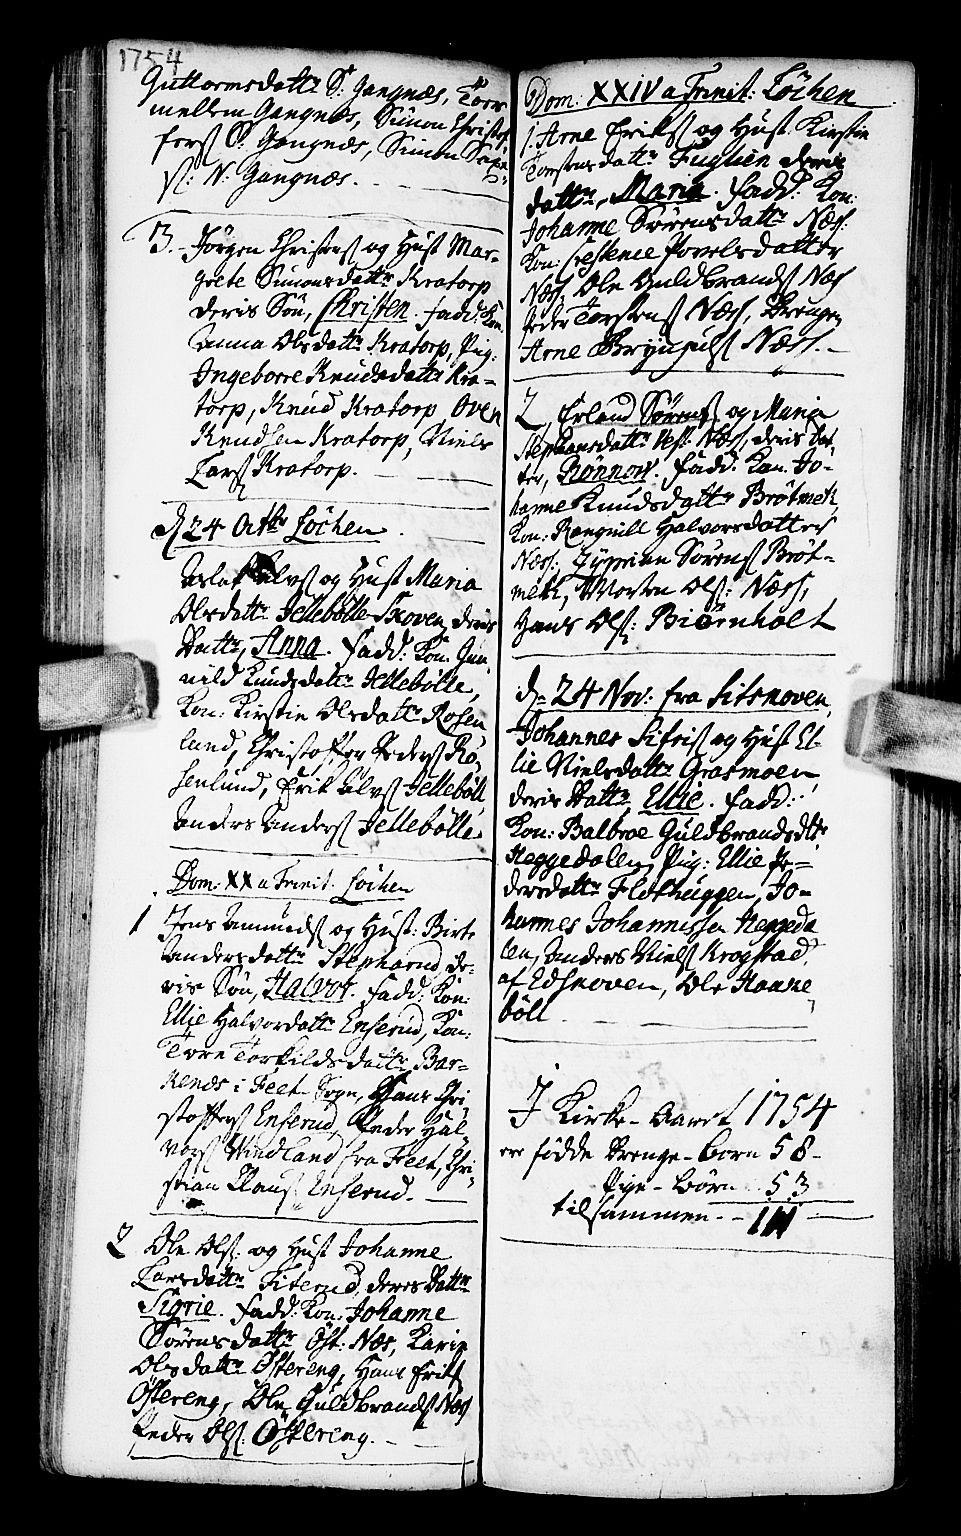 1754
Guttormsdattr S: Gangnæs, Tore
mellem Gangnæs, Simon Christof
fers S: Gangnæs, Simon
N: Gangnæs.
3. Jörgen Christens og Hust Mar-
grete Simonsdattr Kratorp
deris Sön, Christen. fadd: Kon
Anna Olsdattr Kratorp, Pig:
Ingeborre Knudsdattr Kra-
torp, Knud Kratorp, Oven
Knudsen Kratorp, Niels
Lars Kratorp.
d 24 Octbr Löchen
Aslak Elvs og Hust Maria
Olsdattr Jellebölle Skoven, deris
Dattr, Anna. fadd: Kon: Gun
nild Knudsdattr Jellebölle,
Kon: Kirstie Olsdattr Rosen
lund, Christoffer Peders Ro
senlund, Erik Elvs Jelleböll
Anders Anders Jellebölle.
Dom: XX a Trinit: Löchen
1 Jens Amunds og Hust: Birte
Andersdattr Stepharud, de-
ris Sön, Halvor. fadd: Kon:
Ellie Halvordattr Enserud, Kon:
Tore Torkildsdattr Bar-
kenæs i Feet Sogn, Hans Chri
stoffers Enserud, Peder Hal
vors Windland fra Feet, Chri-
stian Klaus Enserud.
2 Ole Ols: og Hust Johanne
Larsdattr Siterud, deres Dattr
Sigrie. fadd: Kon: Johanne
Sörensdattr Öst: Næs, Karin
Olsdattr Östereng, Hans Eriks
Östereng, Ole Guldbrands Næs
Peder Ols: Östereng.
Dom: XXIV a Trinit: Löchen
1. Arne Eriks og Hust. Kirstie
Torstensdattr Fuglien deris
dattr, Maria. fadd: Kon:
Johanne Sörensdattr Næs:
Kon: Crestence Povelsdatter
Næs, Ole Guldbrands Næs
Peder Torstens Næss, Drengen
Arne Brynjuls Næss.
2 Erland Sörens og Maria
Stephansdattr Næss, deris Dat
ter, Rönnow. fadd: Kon. Jo-
hanne Knudsdattr Brötmek,
Kon: Rangnill Halvorsdatter
Næss, Zyprian Sörens Bröt-
mek, Morten Ols: Næss,
Hans Ols: Biörnholt
d: 24 Nov: fra Sitskoven,
Johannes Sifris og Hust El-
lie Nielsdattr Grasmoen
deris Dattr, Ellie. fadd:
Kon: Balbroe Guldbrandsdtr
Heggedalen, Pig: Ellie Pe-
dersdattr Flothuggen, Jo-
hannes Johannissen Heggeda
len, Anders Niels Krogstad,
af Edskoven, Ole Hanne
böll
I Kirke-Aaret 1754
ere födde Drenge-born 58-
Pige-börn 53
tilsammen - 111